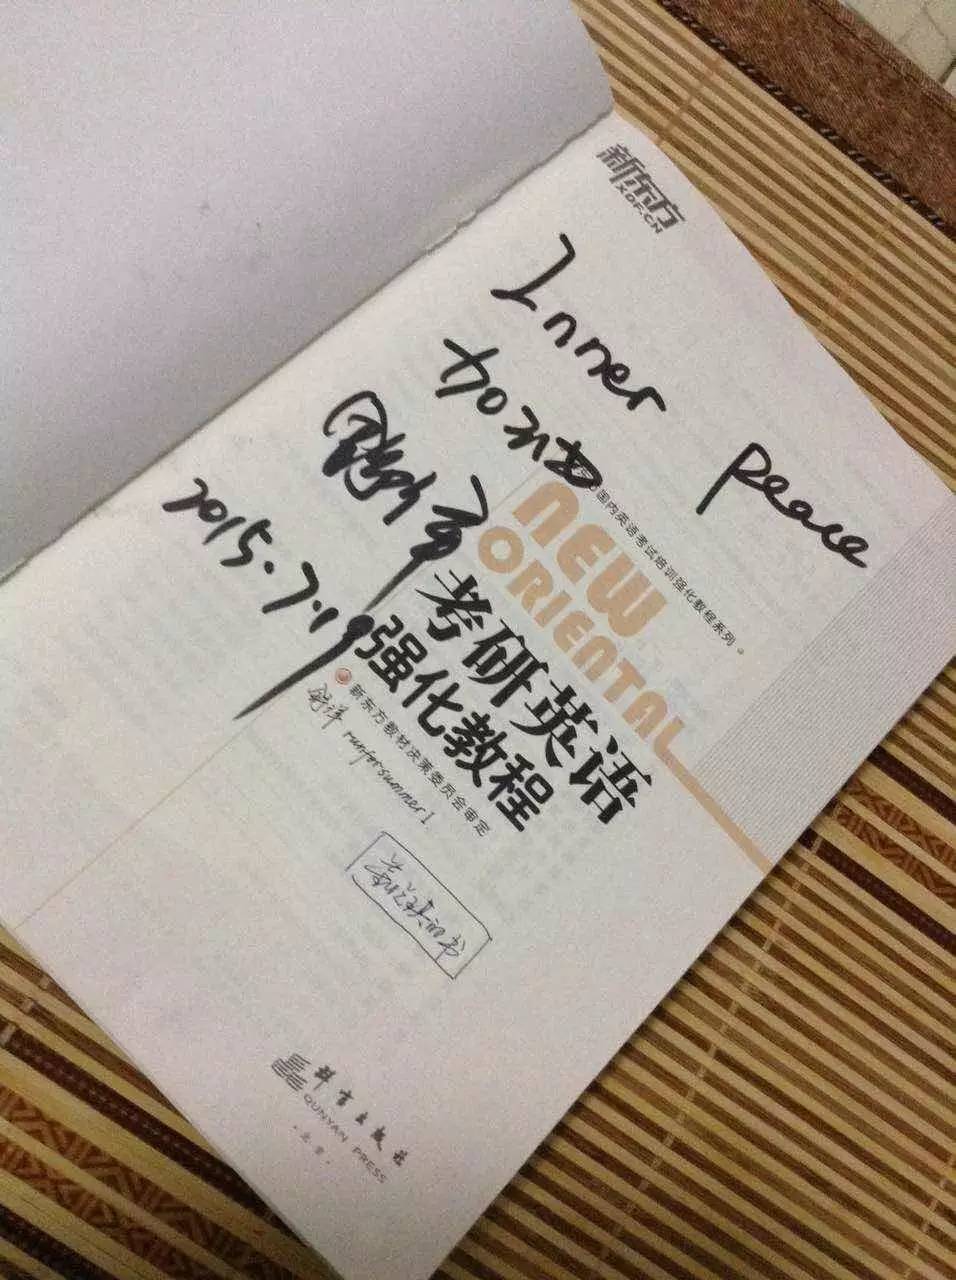 新东方
XDF.CN
Inner Peace
加油
2015.7.19
国内英语考试培训强化教程系列
NEW
ORIENTAL
考研英语
强化教程
新东方教材决策委员会审定
run for summer!
群言出版社
QUNYAN PRESS
·北京·